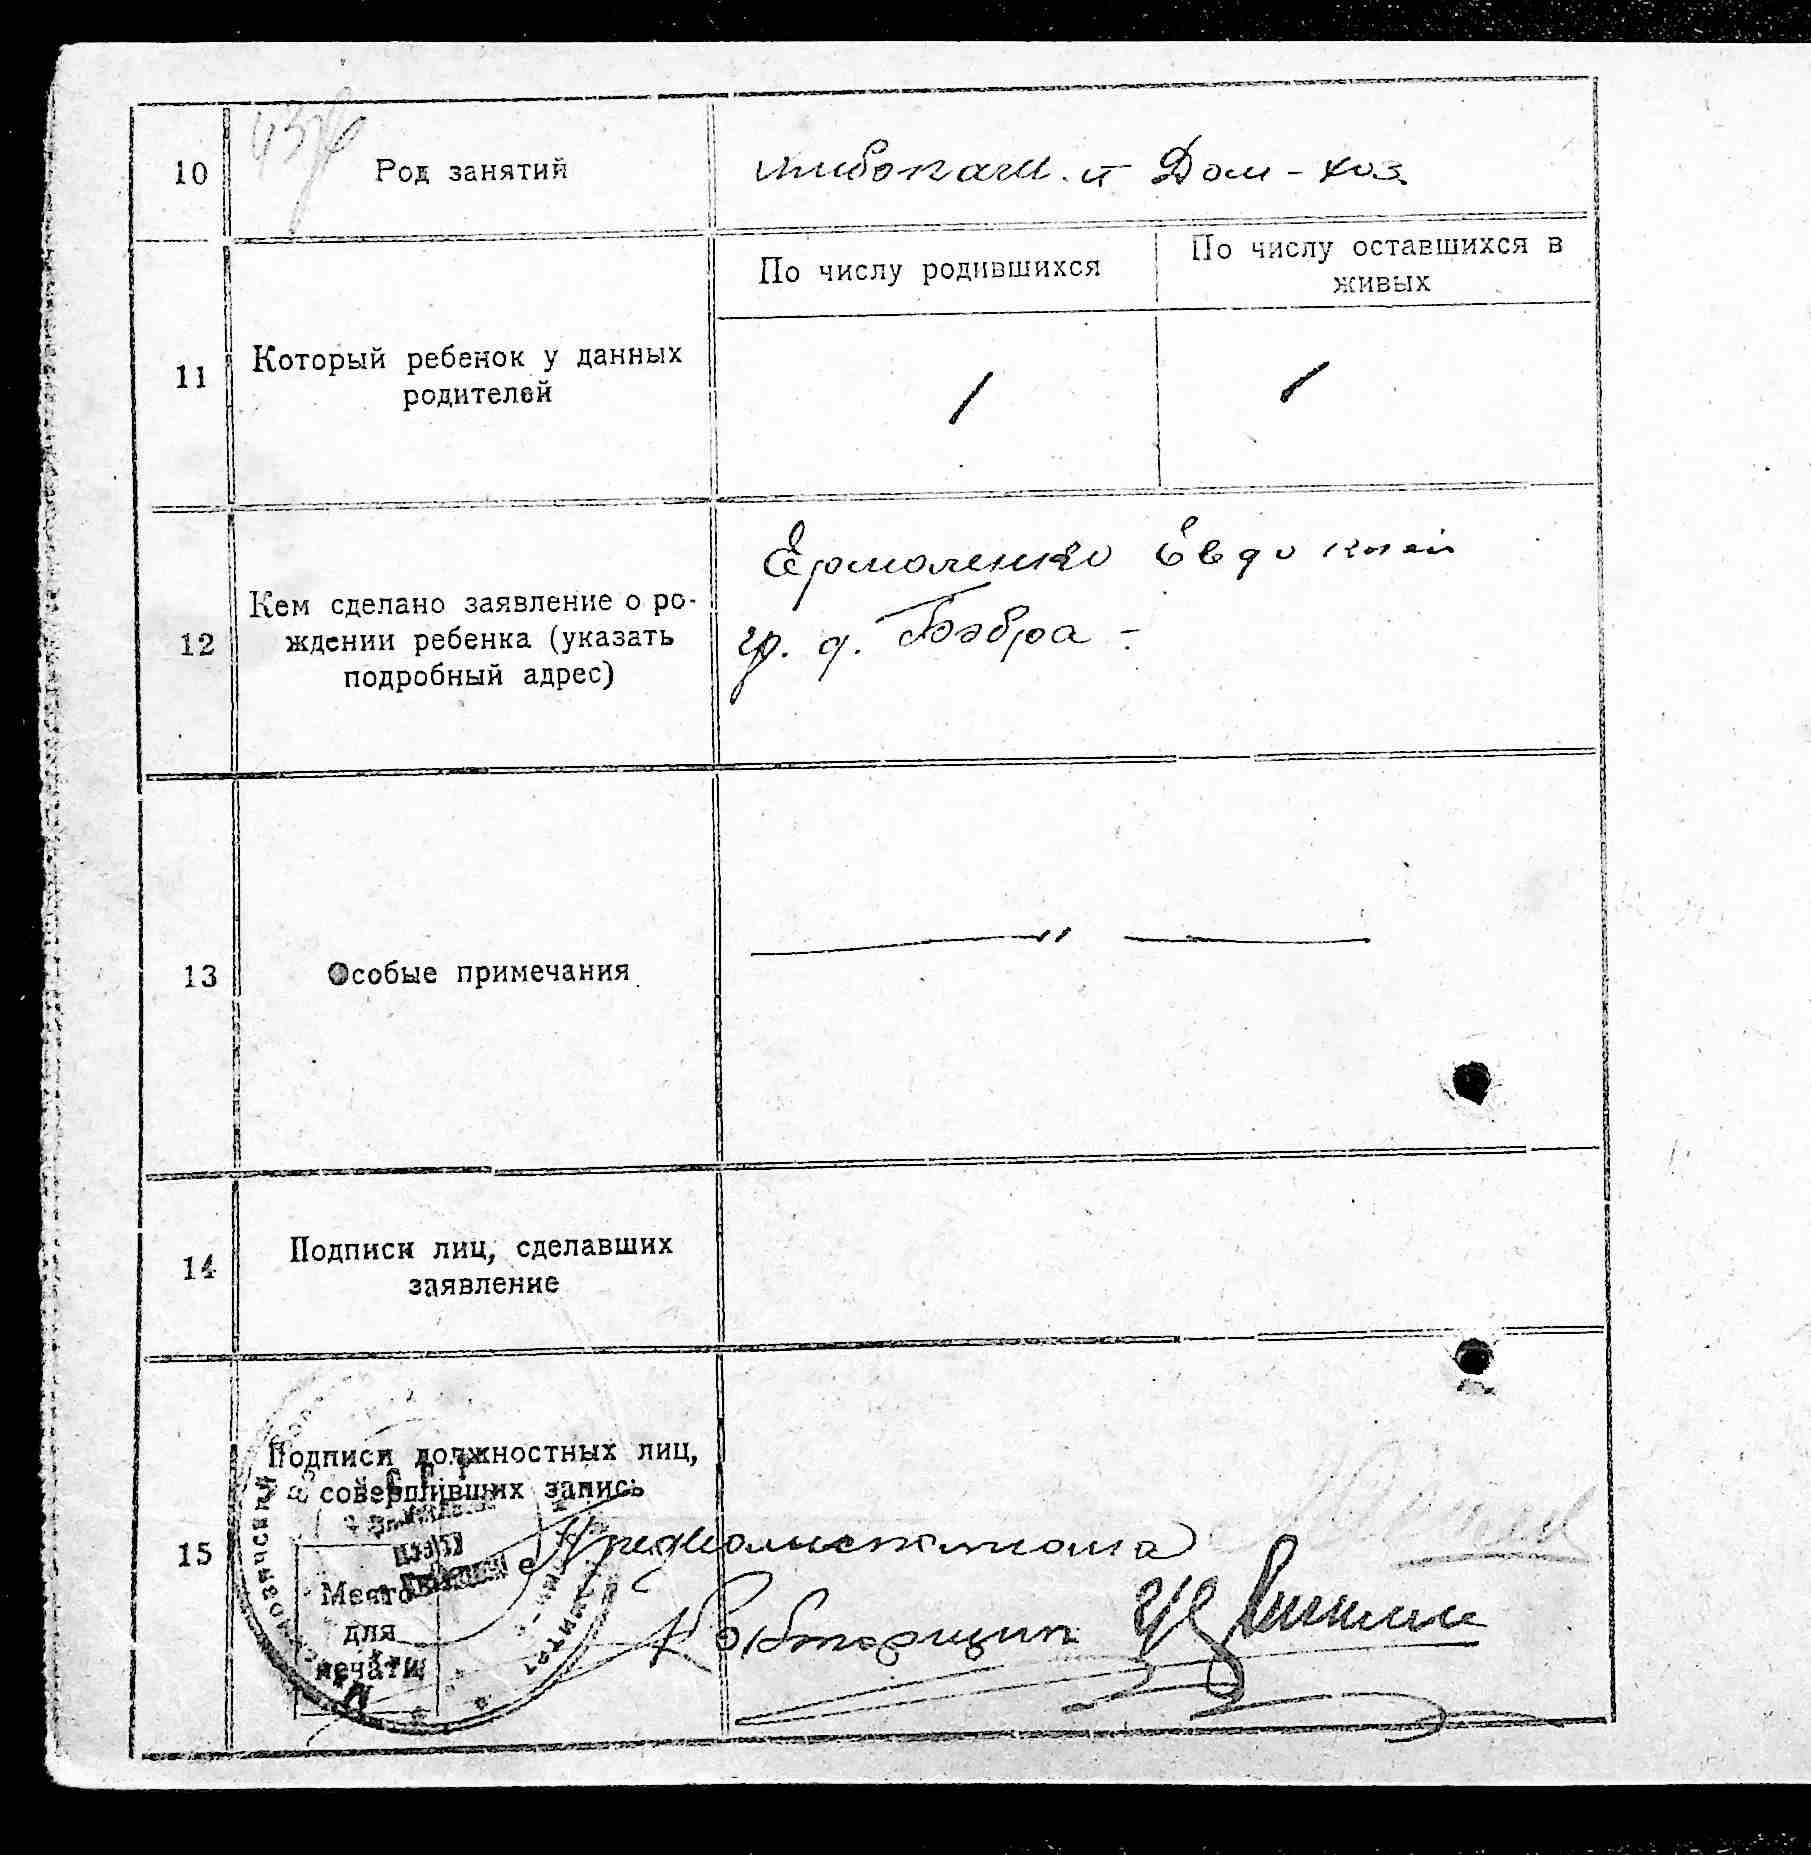 10
Род занятий
хлебопаш. и Дом-хоз
11
Который ребенок у данных
родителей
По числу родившихся
По числу оставшихся в
живых
1
1
12
Кем сделано заявление о ро-
ждении ребенка (указать
подробный адрес)
Ермоленко Евдокией
гр. д. Бобра -
13
Особые примечания
— " —
14
Подписи лиц, сделавших
заявление
15
Подписи должностных лиц,
совершивших запись
Место
для
печати